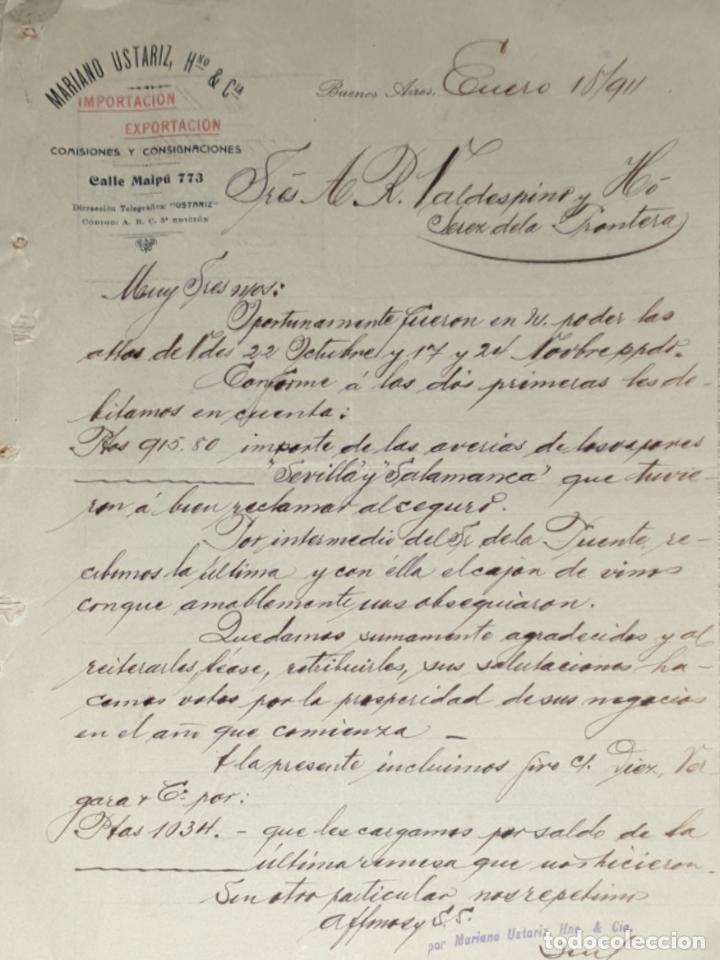 MARIANO USTARIZ, Hno & Cia
IMPORTACIÓN
EXPORTACIÓN
COMISIONES Y CONSIGNACIONES
Calle Maipú 773
Dirección Telegráfica: "OSTARIZ"
CÓDIGO: A. B. C. 5ª EDICIÓN
Buenos Aires, Enero 18/911
Sres A. R. Valdespino y Hº
Jerez de la Frontera
Muy Sres njos:
Oportunamente fueron en n. poder las
attas de Vdes 22 Octubre y 17 y 24 Novbre ppdo.
Conforme á las dós primeras les de-
bitamos en cuenta:
Ptas 915.80 importe de las averias de los vapores
"Sevilla" y "Salamanca" que tuvie-
ron á bien reclamar al seguro.
Por intermedio del Sr de la Puente, re-
cibimos la última y con élla el cajón de vinos
con que amablemente nos obsequiaron.
Quedamos sumamente agradecidos y al
reiterarles, léase, retribuirles, sus salutaciones ha-
cemos votos por la prosperidad de sus negocios
en el año que comienza —
A la presente incluimos giro c/. Diez, Ver-
gara & Cª por:
Ptas 1034.- que les cargamos por saldo de la
última remesa que nos hicieron.
Sin otro particular nos repetimos
Affmos y S. S.
por Mariano Ustariz, Hno. & Cia.
todocoleccion.net